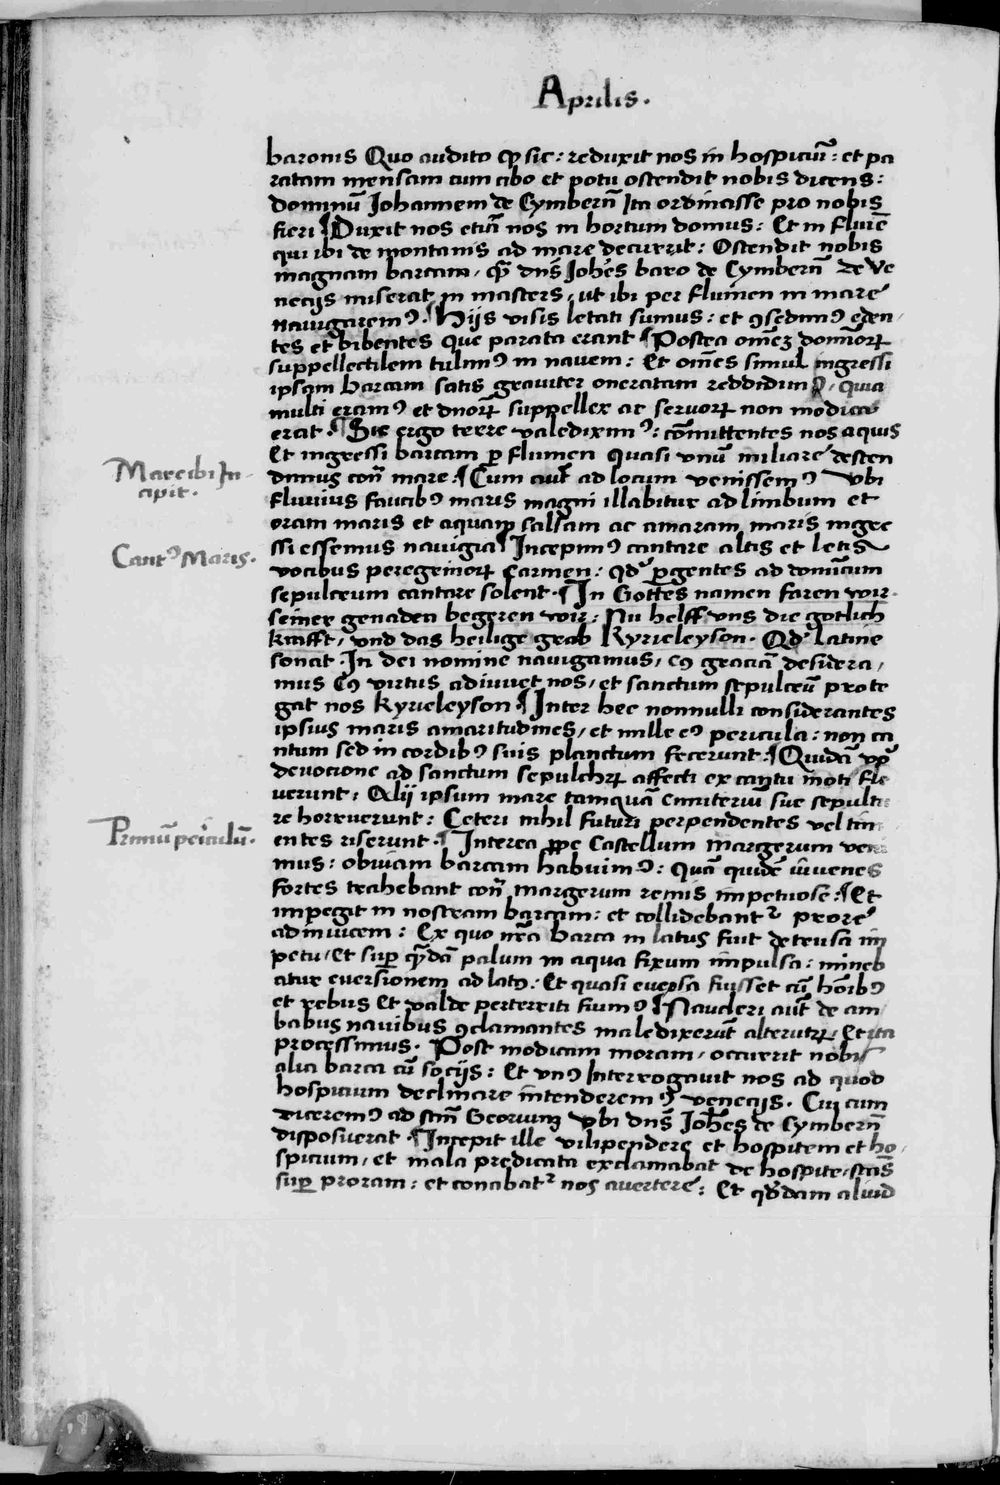 Aprilis.
baronis Quo audito qꝫ sic: reduxit nos in hospiciũ: et pa
ratam mensam cum cibo et potu ostendit nobis dicens:
dominũ Johannem de Cymberñ Ita ordinasse pro nobis
fieri ¶ Duxit nos etiã nos in hortum domus: Et in fluuẽ
qui ibi de montanis ad mare decurrit: Ostendit nobis
magnam barcam, qã dñs Joh̃es baro de Cymberñ de Ve
necijs miserat in masters, ut ibi per flumen in mare
nauigaremꝰ. ¶ Hijs visis letati sumus: et ꝯsedimꝰ eden,
tes et bibentes que parata erant ¶ Postea om̃eꝫ dominoꝝ
suppellectilem tulimꝰ in nauem: Et om̃es simul ingressi
ipsam barcam satis grauiter oneratam reddidimꝰ, quia
multi eramꝰ et dñoꝝ suppellex ac seruoꝝ non modica
erat. ¶ Sic ergo terre valediximꝰ: cõmittentes nos aquis
Et ingressi barcam ꝑ flumen quasi vnũ miliare descen
Mare ibi In-
cipit.
dimus cont̃ mare. ¶ Cum aut̃ ad locum venissemꝰ vbi
fluuius faucibꝰ maris magni illabitur ad limbum et
oram maris et aquaꝝ salsam ac amaram maris ingre
Cantꝰ Maris.
ssi essemus nauigia ¶ Incepimꝰ cantare altis et letis
vocibus peregrinoꝝ Carmen: qd̛ ꝑgentes ad dominicum
sepulcrum cantare solent. ¶ In Gottes namen faren wir.
seiner genaden begeren wir: Nu helff vns die gotlich
krafft, vnd das heilige grab Kyrieleyson. Qd̛ latine
sonat. In dei nomine nauigamus, eꝰ graciã desidera,
mus Eꝰ virtus adiuuet nos, et sanctum sepulcrũ prote
gat nos Kyrieleyson ¶ Inter hec nonnulli considerantes
ipsius maris amaritudines, et mille eꝰ pericula: non ca
ntum sed in cordibꝰ suis planctum fecerunt. ¶ Quidã v̛o
deuocione ad sanctum sepulchꝝ affecti ex cantu moti fle
uerunt: Alij ipsum mare tamquã cimiteriũ sue sepultu
Primũ pericułũ.
re horruerunt: Ceteri nihil futuri perpendentes vel tim
entes riserunt. ¶ Interea ꝓpe Castellum margerum veni
mus: obuiam barcam habuimꝰ: Quã quidẽ iuuenes
fortes trahebant cont̃ margerum remis impetuose: ¶ Et
impegit in nostram barcam: et collidebant̛ prore
adinuicem: Ex quo nr̃a barca in latus fuit detrusa im
petu, Et suꝑ qũdã palum in aqua fixum impulsa: mineb
atur euersionem ad latꝰ: Et quasi euersa fuisset cũ hõibꝰ
et rebus Et valde perterriti fuimꝰ ¶ Naucleri aut̃ de am
babus nauibus ꝯclamantes maledixerũt alterutrꝝ, Et ita
processimus. Post modicam moram, occurrit nobis
alia barca cũ socijs: Et vnꝰ Interrogauit nos ad quod
hospicium declinare intenderemꝰ venecijs. Cui cum
diceremꝰ ad sctm̃ Georium vbi dñs Joh̃es de Cymberñ
disposuerat. ¶ Incepit ille vilipendere et hospitem et ho,
spicium, et mala predicata exclamabat de hospite, stãs
suꝑ proram: et conabat̛ nos auertere: Et q̃dam aliud